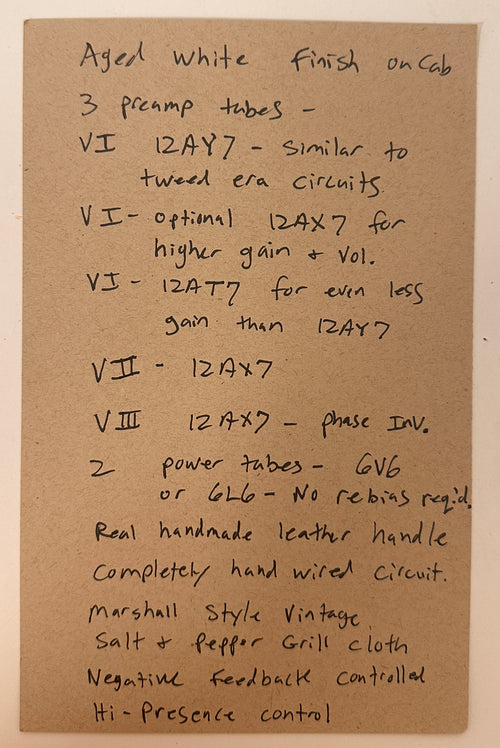 Aged White Finish on Cab
3 preamp tubes -
VI 12AY7 - Similar to
tweed era circuits
VI - optional 12AX7 for
higher gain & Vol.
VI - 12AT7 for even less
gain than 12AY7
VII - 12AX7
VIII 12AX7 - phase Inv.
2 power tubes - 6V6
or 6L6 - No rebias req'd.
Real handmade leather handle
Completely hand wired circuit.
Marshall Style Vintage
Salt & Pepper Grill cloth
Negative Feedback controlled
Hi-Presence control